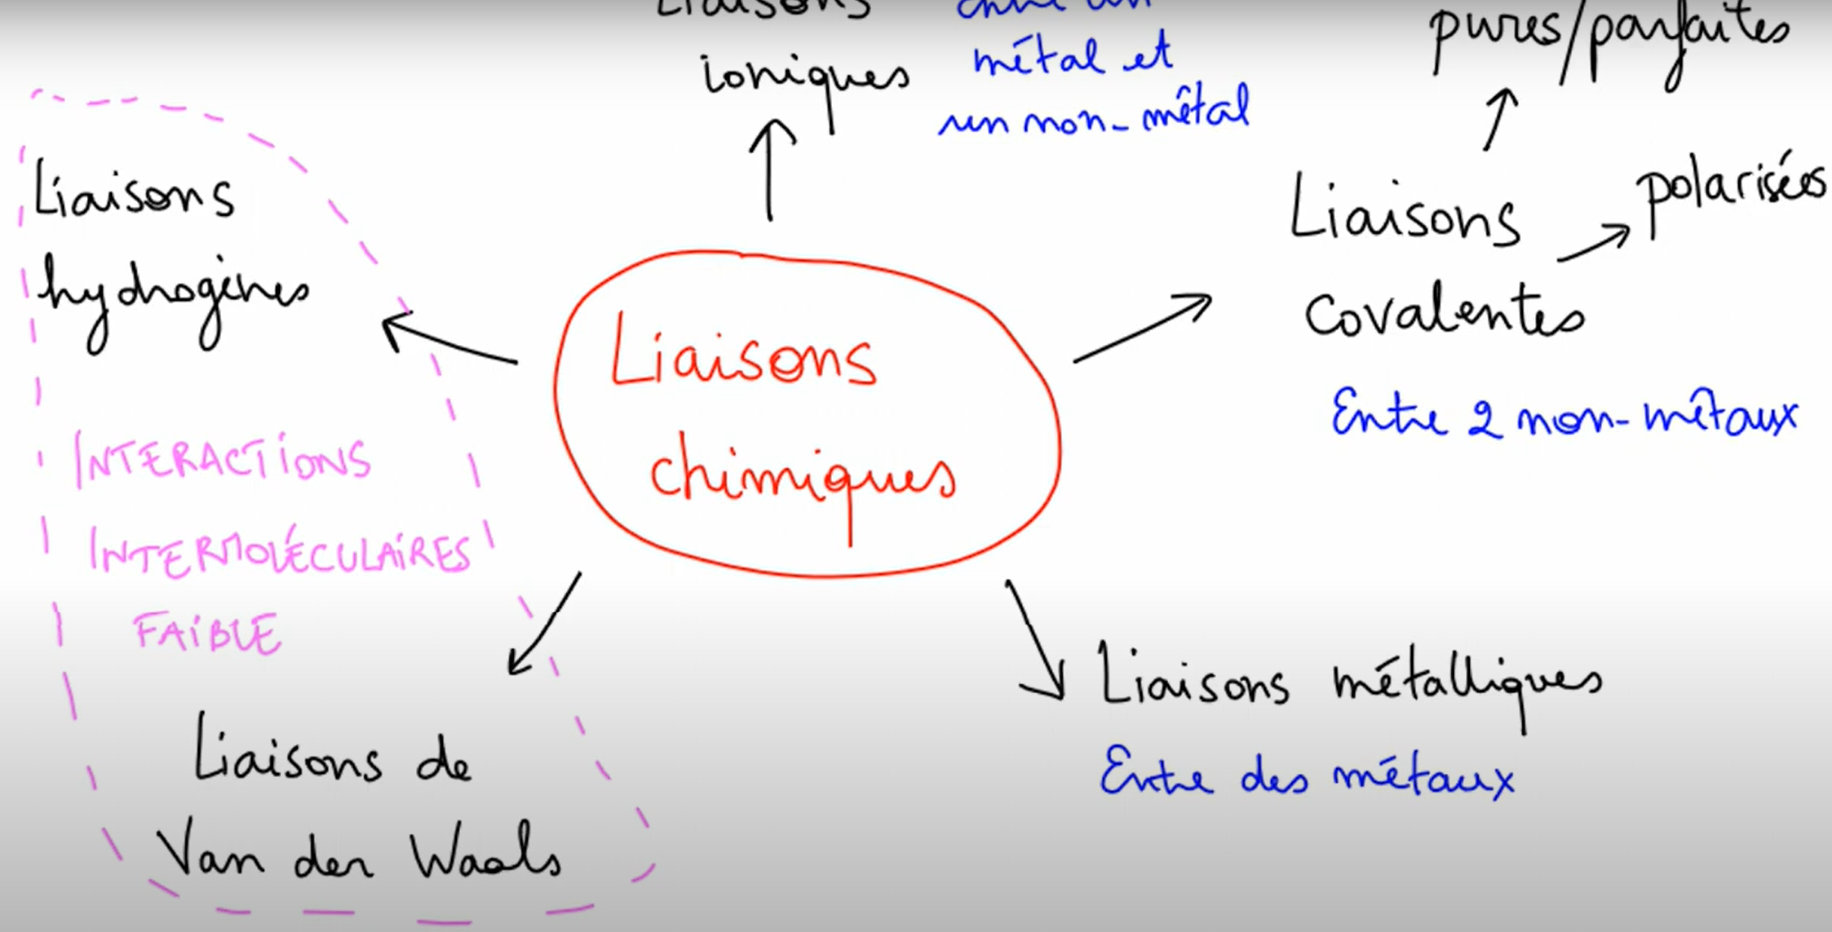 Liaisons
ioniques
entre un
métal et
un non-métal
pures/parfaites
polarisées
Liaisons
covalentes
Entre 2 non-métaux
Liaisons
hydrogènes
Liaisons
chimiques
INTERACTIONS
INTERMOLÉCULAIRES
FAIBLE
Liaisons métalliques
Entre des métaux
Liaisons de
Van der Waals